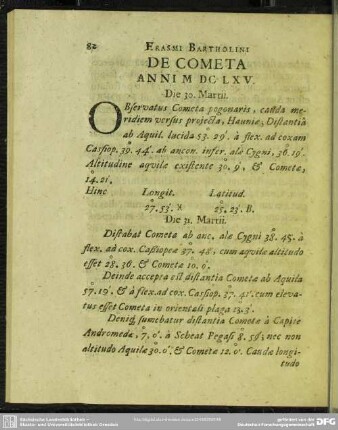 82 ERASMI BARTHOLINI
DE COMETA
ANNI M DC LXV.
Die 30. Martii.
OBservatus Cometa pogonaris, cauda me-
ridiem versus projecta, Hauniæ, Distantiâ
ab Aquil. lucida 53. 29'. à flex. ad coxam
Cassiop. 39. 44'. ab ancon. infer. alæ Cygni, 36. 19'.
Altitudine aquilæ existente 30. 9', & Cometæ,
14. 21.
Hinc Longit. Latitud.
27. 53'. 25. 23'. B.
Die 31. Martii.
Distabat Cometa ab anc. alæ Cygni 38. 45. à
flex. ad cox. Cassiopeæ 37. 48, cum aquilæ altitudo
esset 28. 36. & Cometæ 10. 0'.
Deinde accepta est distantia Cometæ ab Aquila
57. 19'. & à flex. ad cox. Cassiop. 37. 41'. cum eleva-
tus esset Cometa in orientali plaga 13. 3'.
Deniq; sumebatur distantia Cometæ à Capite
Andromedæ, 7. 0'. à Scheat Pegasi 8. 58'; nec non
altitudo Aquilæ 30. 0', & Cometæ 12. 0'. Caudæ longi-
tudo
Sächsische Landesbibliothek -
Staats- und Universitätsbibliothek Dresden
gefördert von der
Deutschen Forschungsgemeinschaft
DFG